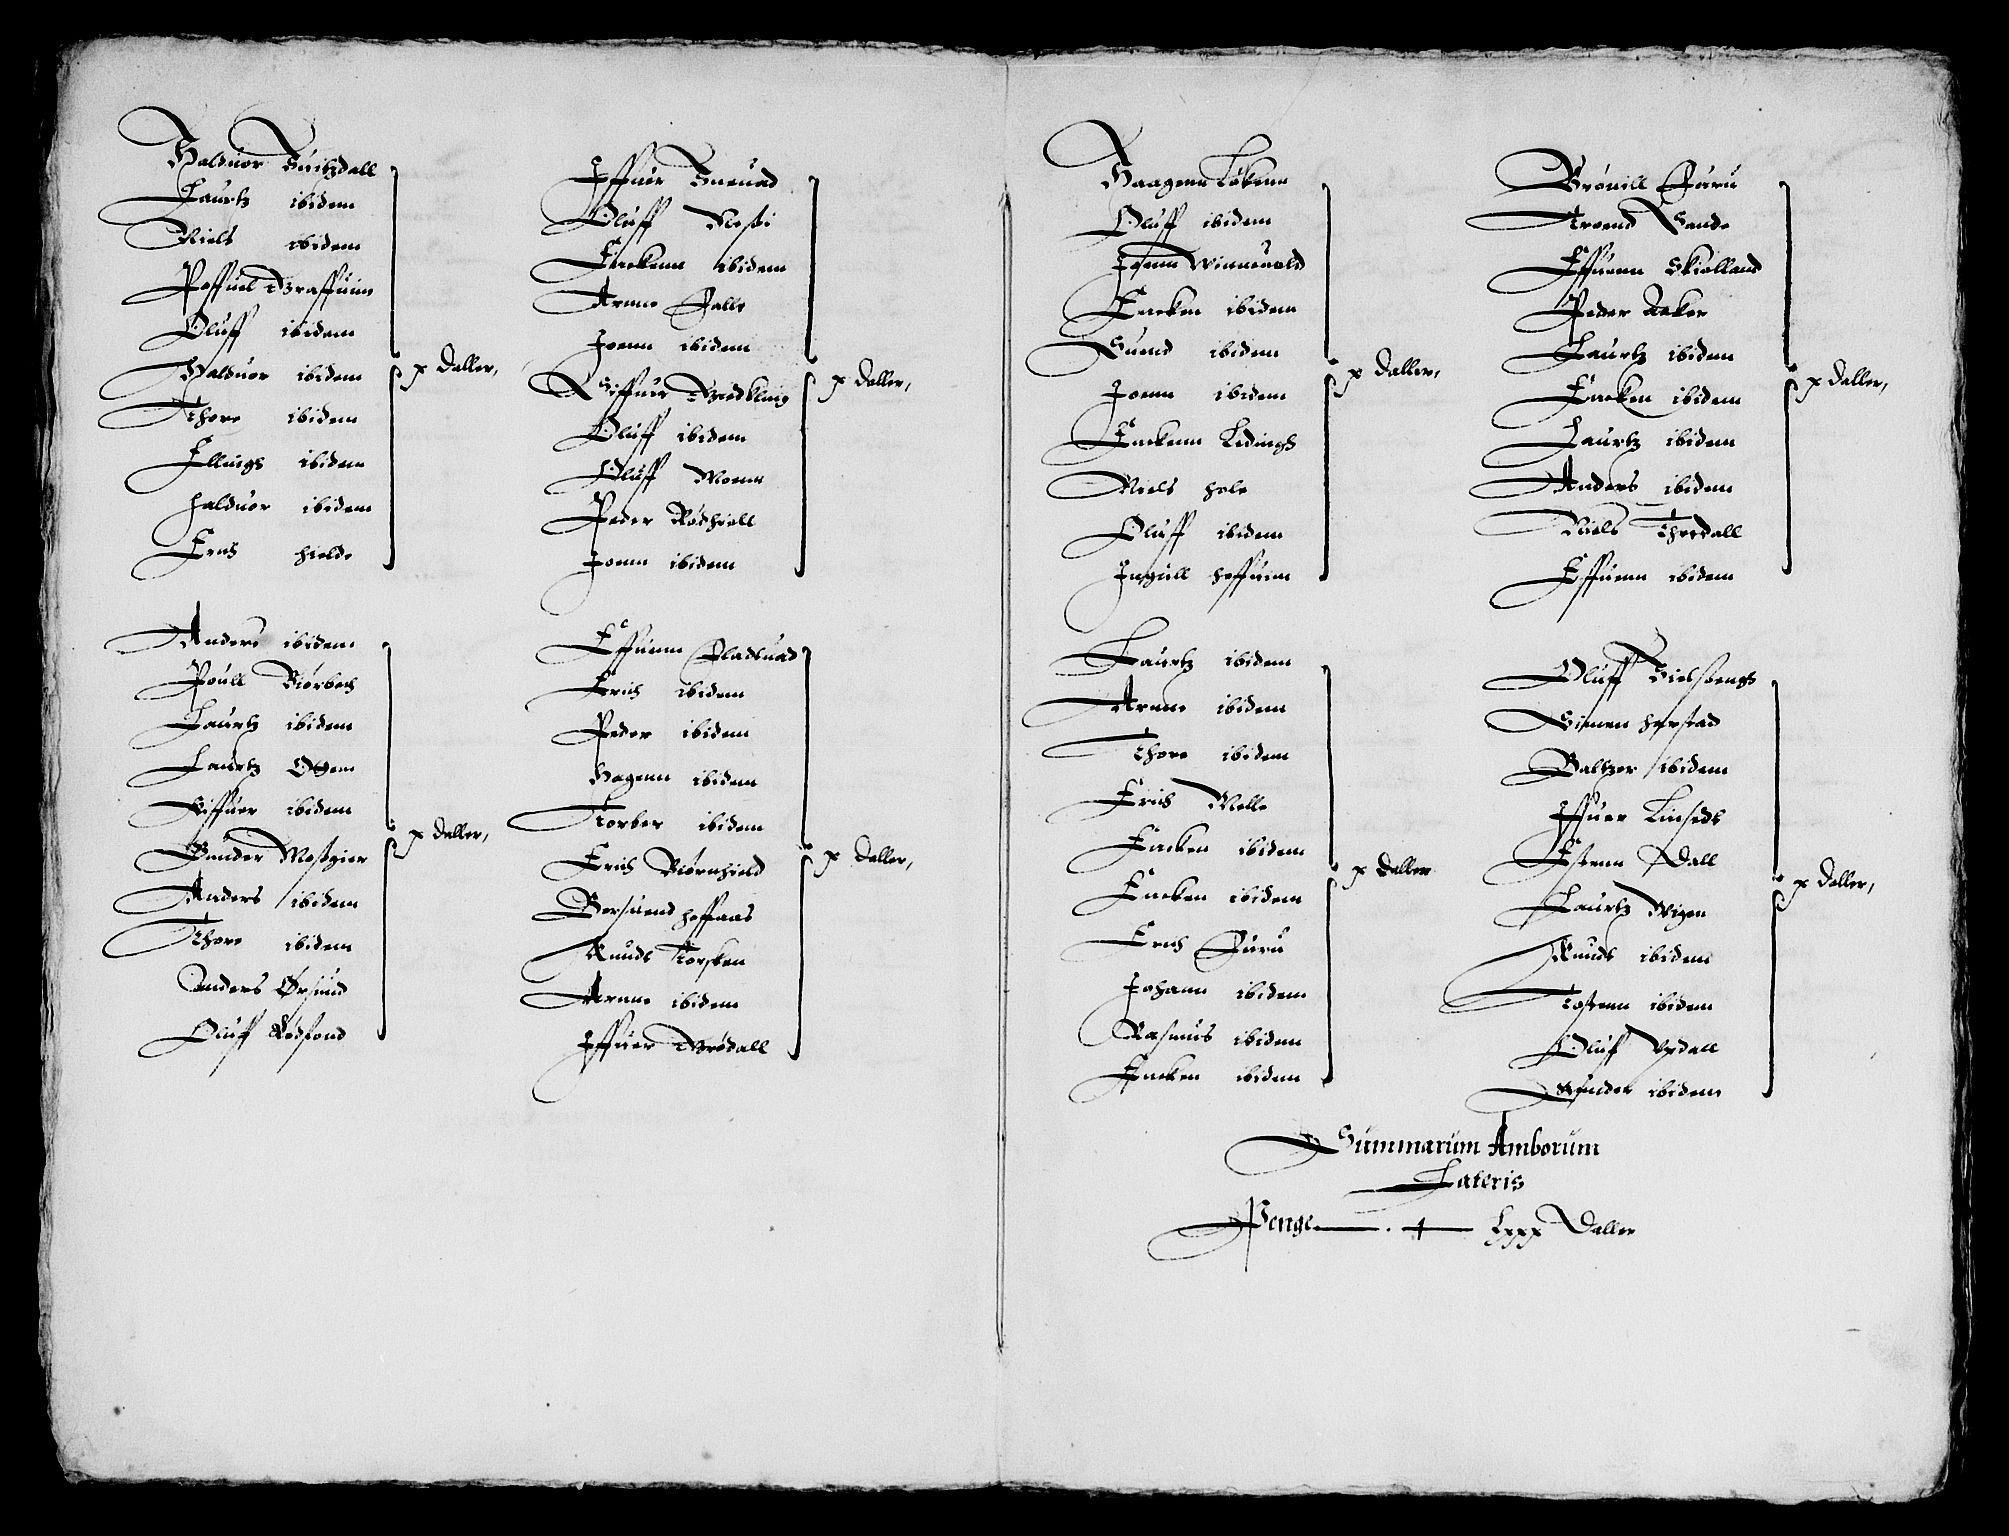 Halduor Suitzdall
Laurtz ibidem
Niels ibidem
Poffuel Graffuim
Oluff ibidem
Halduor ibidem
Thore ibidem
Ellings ibidem
Halduor ibidem
Erich Hielde
x Daller,
Anders ibidem
Poull Biørbech
Laurtz ibidem
Laurtz
Siffuer ibidem
Gunder Mostgier
Anders ibidem
Thore ibidem
Anders Ørsund
Oluff Rødsond
x Daller,
Iffuer Sneuad
Oluff Nesti
Enckenn ibidem
Arnne Falle
Joenn ibidem
Siffuer Bredkling
Oluff ibidem
Oluff Moenn
Peder Rødhiell
Joenn ibidem
x Daller,
Effuenn Fladuad
Erich ibidem
Peder ibidem
Hagenn ibidem
Torber ibidem
Erich Biørnhield
Bersuend Hoffnas
Knuds Torsken
Arnne ibidem
Iffuer Brødall
x Daller,
Haagenn Løkenn
Oluff ibidem
Joenn Winneuold
Encken ibidem
Suend ibidem
Joenn ibidem
Enckenn Lidingh
Niels Hole
Oluff ibidem
Ingüll Hoffuim
x Daller,
Laurtz ibidem
Arnne ibidem
Thore ibidem
Erich Melle
Encken ibidem
Encken ibidem
Erich Furu
Johann ibidem
Rasmus ibidem
Encken ibidem
x Daller
Brønill Furu
Aroend Sande
Effuenn Skielland
Peder Aaker
Laurtz ibidem
Encken ibidem
Laurtz ibidem
Anders ibidem
Niels Thredall
Effuenn ibidem
x Daller,
Oluff Sielstengh
Simen Herstad
Baltzer ibidem
Iffuer Linseds
Estenn Dall
Laurtz Wigen
Knuds ibidem
Tostenn ibidem
Oluf Updall
Gunder ibidem
x Daller,
Summarum Amborum
Lateris
Penge — . + — Lxxx Daller